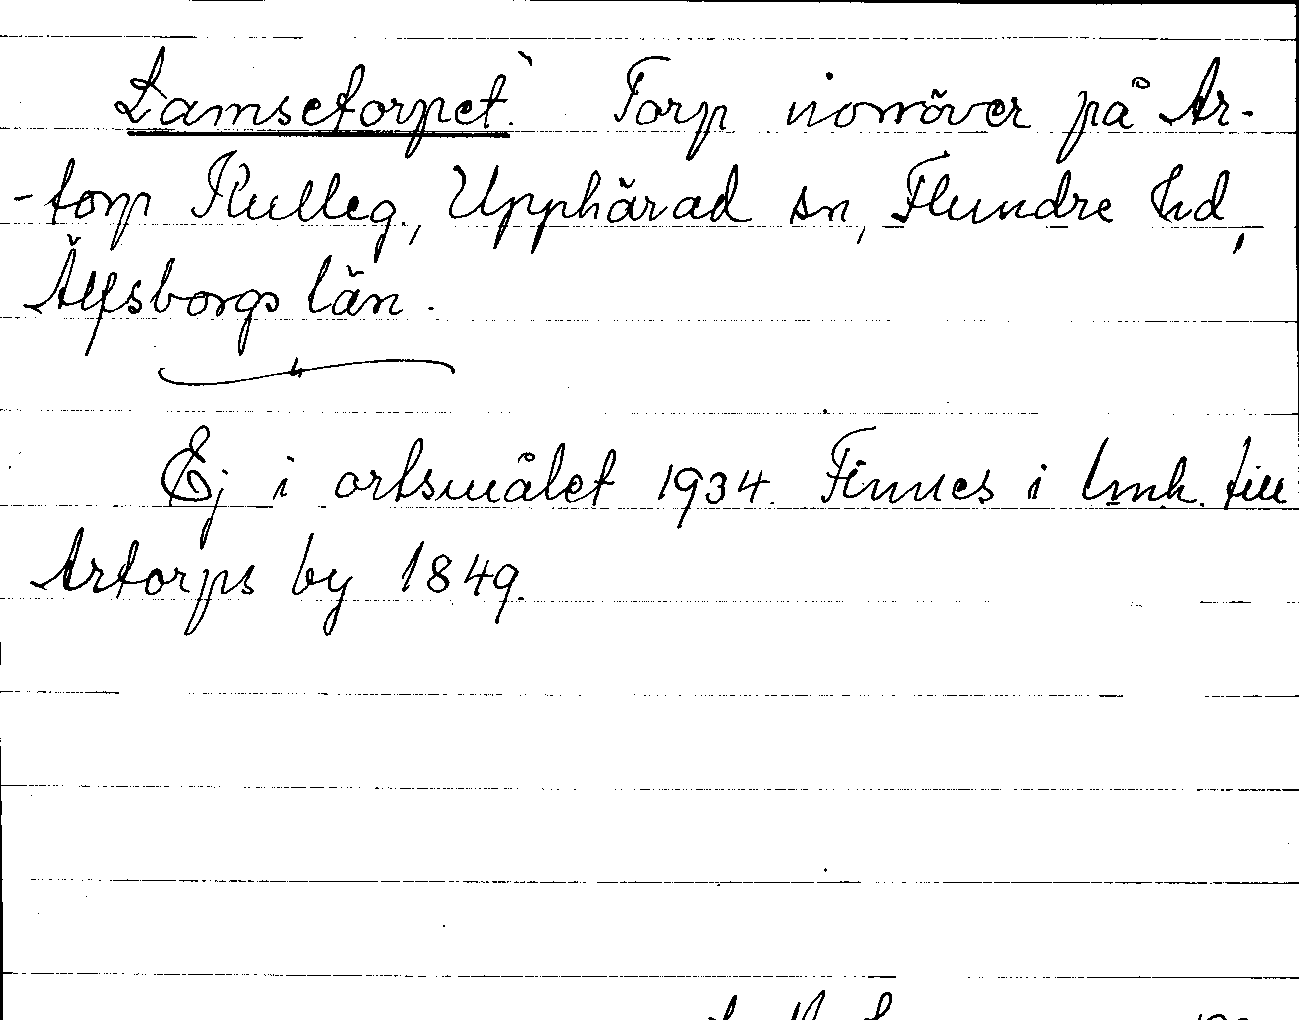 Lamsetorpet` Torp norröver på Ar-
-torp Kulleg., Upphärad sn, Flundre hd,
Älfsborgs län.
Ej i ortsmålet 1934. Finnes i lmk. till
Artorps by 1849.